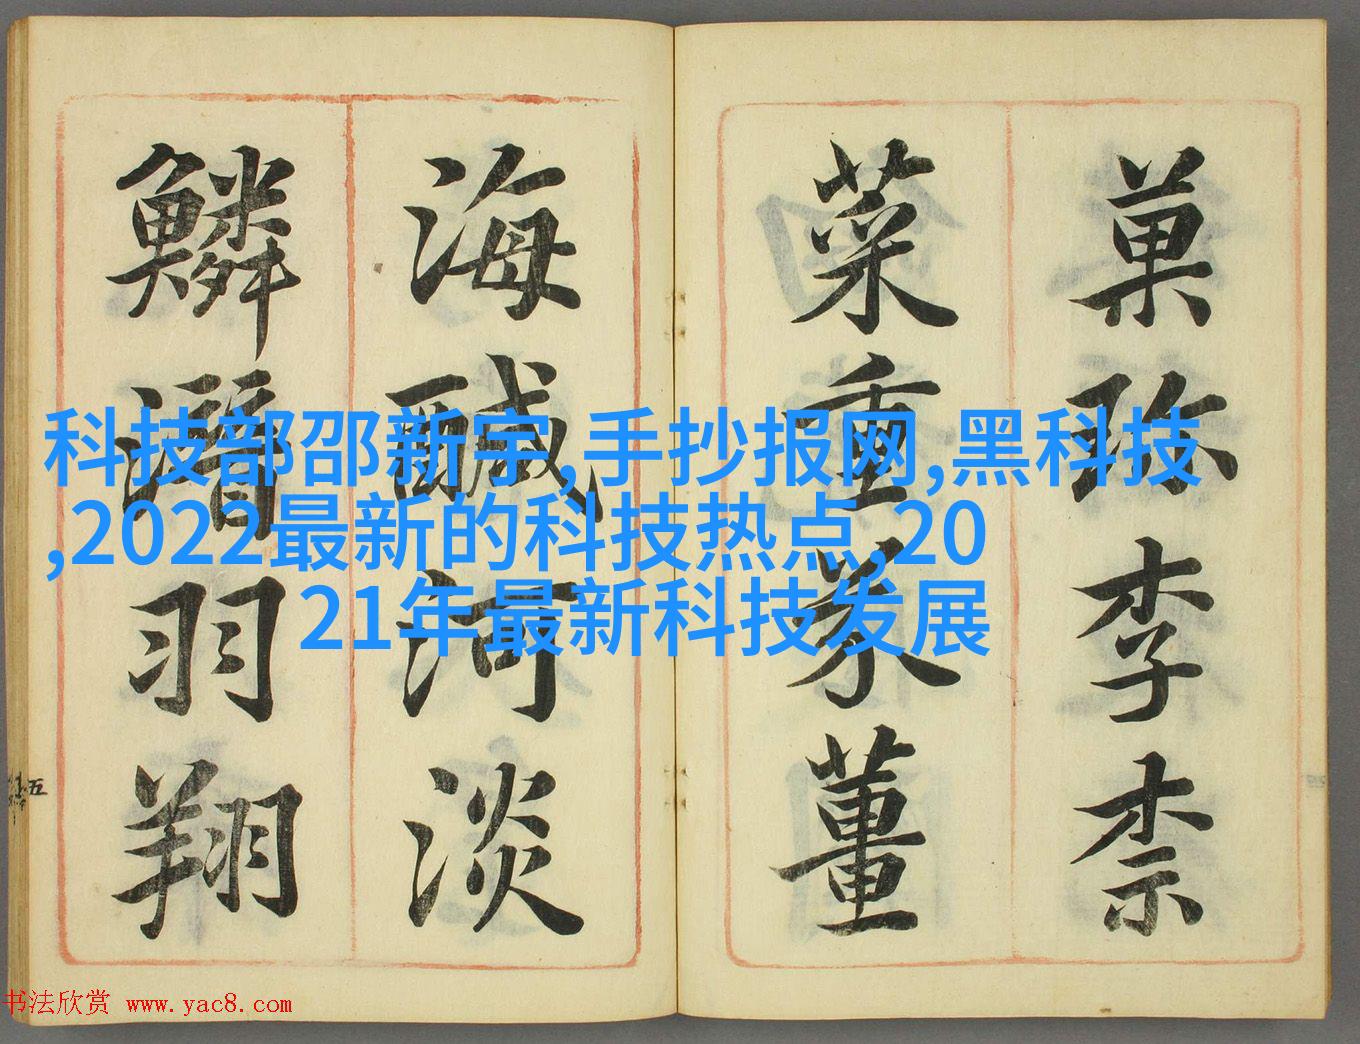 菓珍李柰
菜重芥薑
海醎河淡
鱗潛羽翔
五
科技部邵新宇,手抄报网,黑科技
,2022最新的科技热点,20
21年最新科技发展
书法欣赏 www.yac8.com